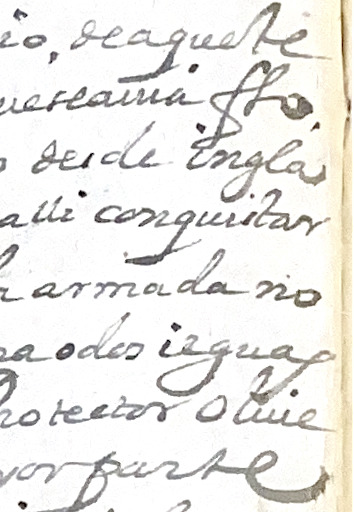 io, deaqueste
ueseauia ffo,
desde ingla
alli conquistar
armada no
odos
rotector Oliue
yor parte